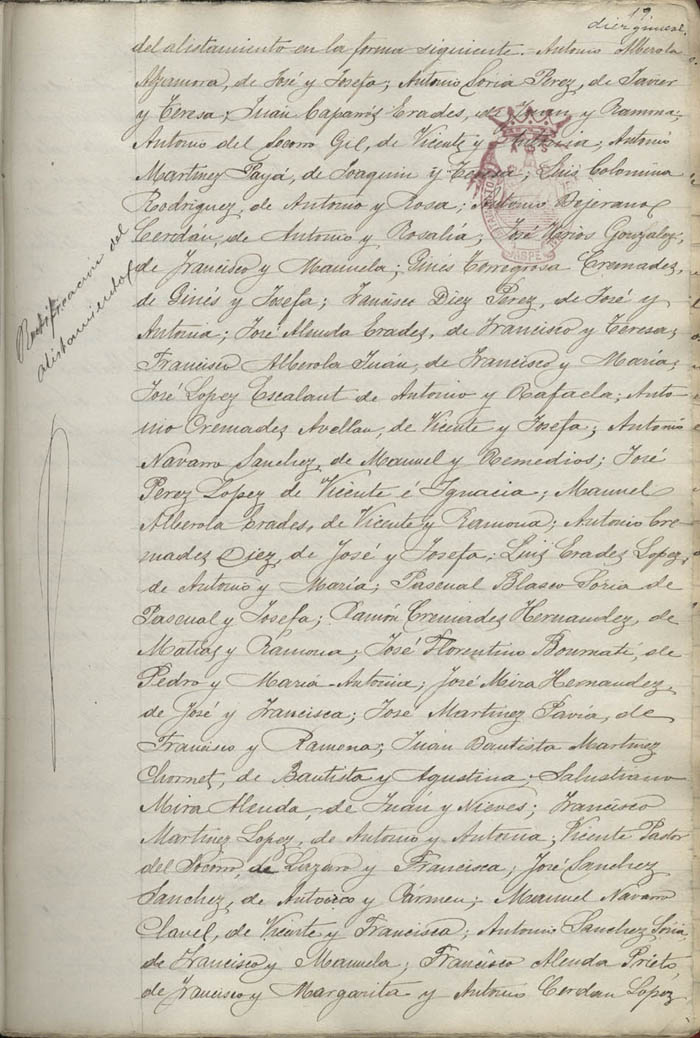 19
diez y nueve
del alistamiento en la forma siguiente.- Antonio Alberola
Alzamora, de José y Josefa; Antonio Soria Perez, de Javier
y Teresa; Juan Caparrós Erades, de Juan y Ramona;
Antonio del Socorro Gil, de Vicente y Antonia; Antonio
Martinez Payá, de Joaquin y Teresa; Luis Colomina
Rodriguez, de Antonio y Rosa; Antonio Bejerano
Cerdán, de Antonio y Rosalía; José Verios González,
de Francisco y Manuela; Ginés Torregrosa Cremades,
de Ginés y Josefa; Francisco Diez Perez, de José y
Antonia; José Alenda Erades, de Francisco y Teresa;
Francisco Alberola Juán, de Francisco y María;
José Lopez Escalant de Antonio y Rafaela; Anto-
nio Cremades Avellan, de Vicente y Josefa; Antonio
Navarro Sanchez, de Manuel y Remedios; José
Perez Lopez de Vicente é Ignacia; Manuel
Alberola Erades, de Vicente y Ramona; Antonio Cre-
mades Diez, de José y Josefa; Luis Erades Lopez,
de Antonio y María; Pascual Blasco Soria de
Pascual y Josefa; Ramón Cremades Hernandez, de
Matias y Ramona; José Florentino Boumati, de
Pedro y María-Antonia; José Mira Hernandez,
de José y Francisca; José Martinez Pavía, de
Francisco y Ramona; Juán Bautista Martinez
Chornet, de Bautista y Agustina; Salustiano
Mira Alenda, de Juán y Nieves; Francisco
Martinez Lopez, de Antonio y Antonia; Vicente Pastor
del Socorro de Lazaro y Francisca; José Sanchez
Sanchez, de Antonio y Cármen; Manuel Navarro
Clavel, de Vicente y Francisca; Antonio Sanchez Soria,
de Francisco y Manuela; Francisco Alenda Prieto,
de Francisco y Margarita y Antonio Cerdan Lopez
Rectificacion del
alistamiento